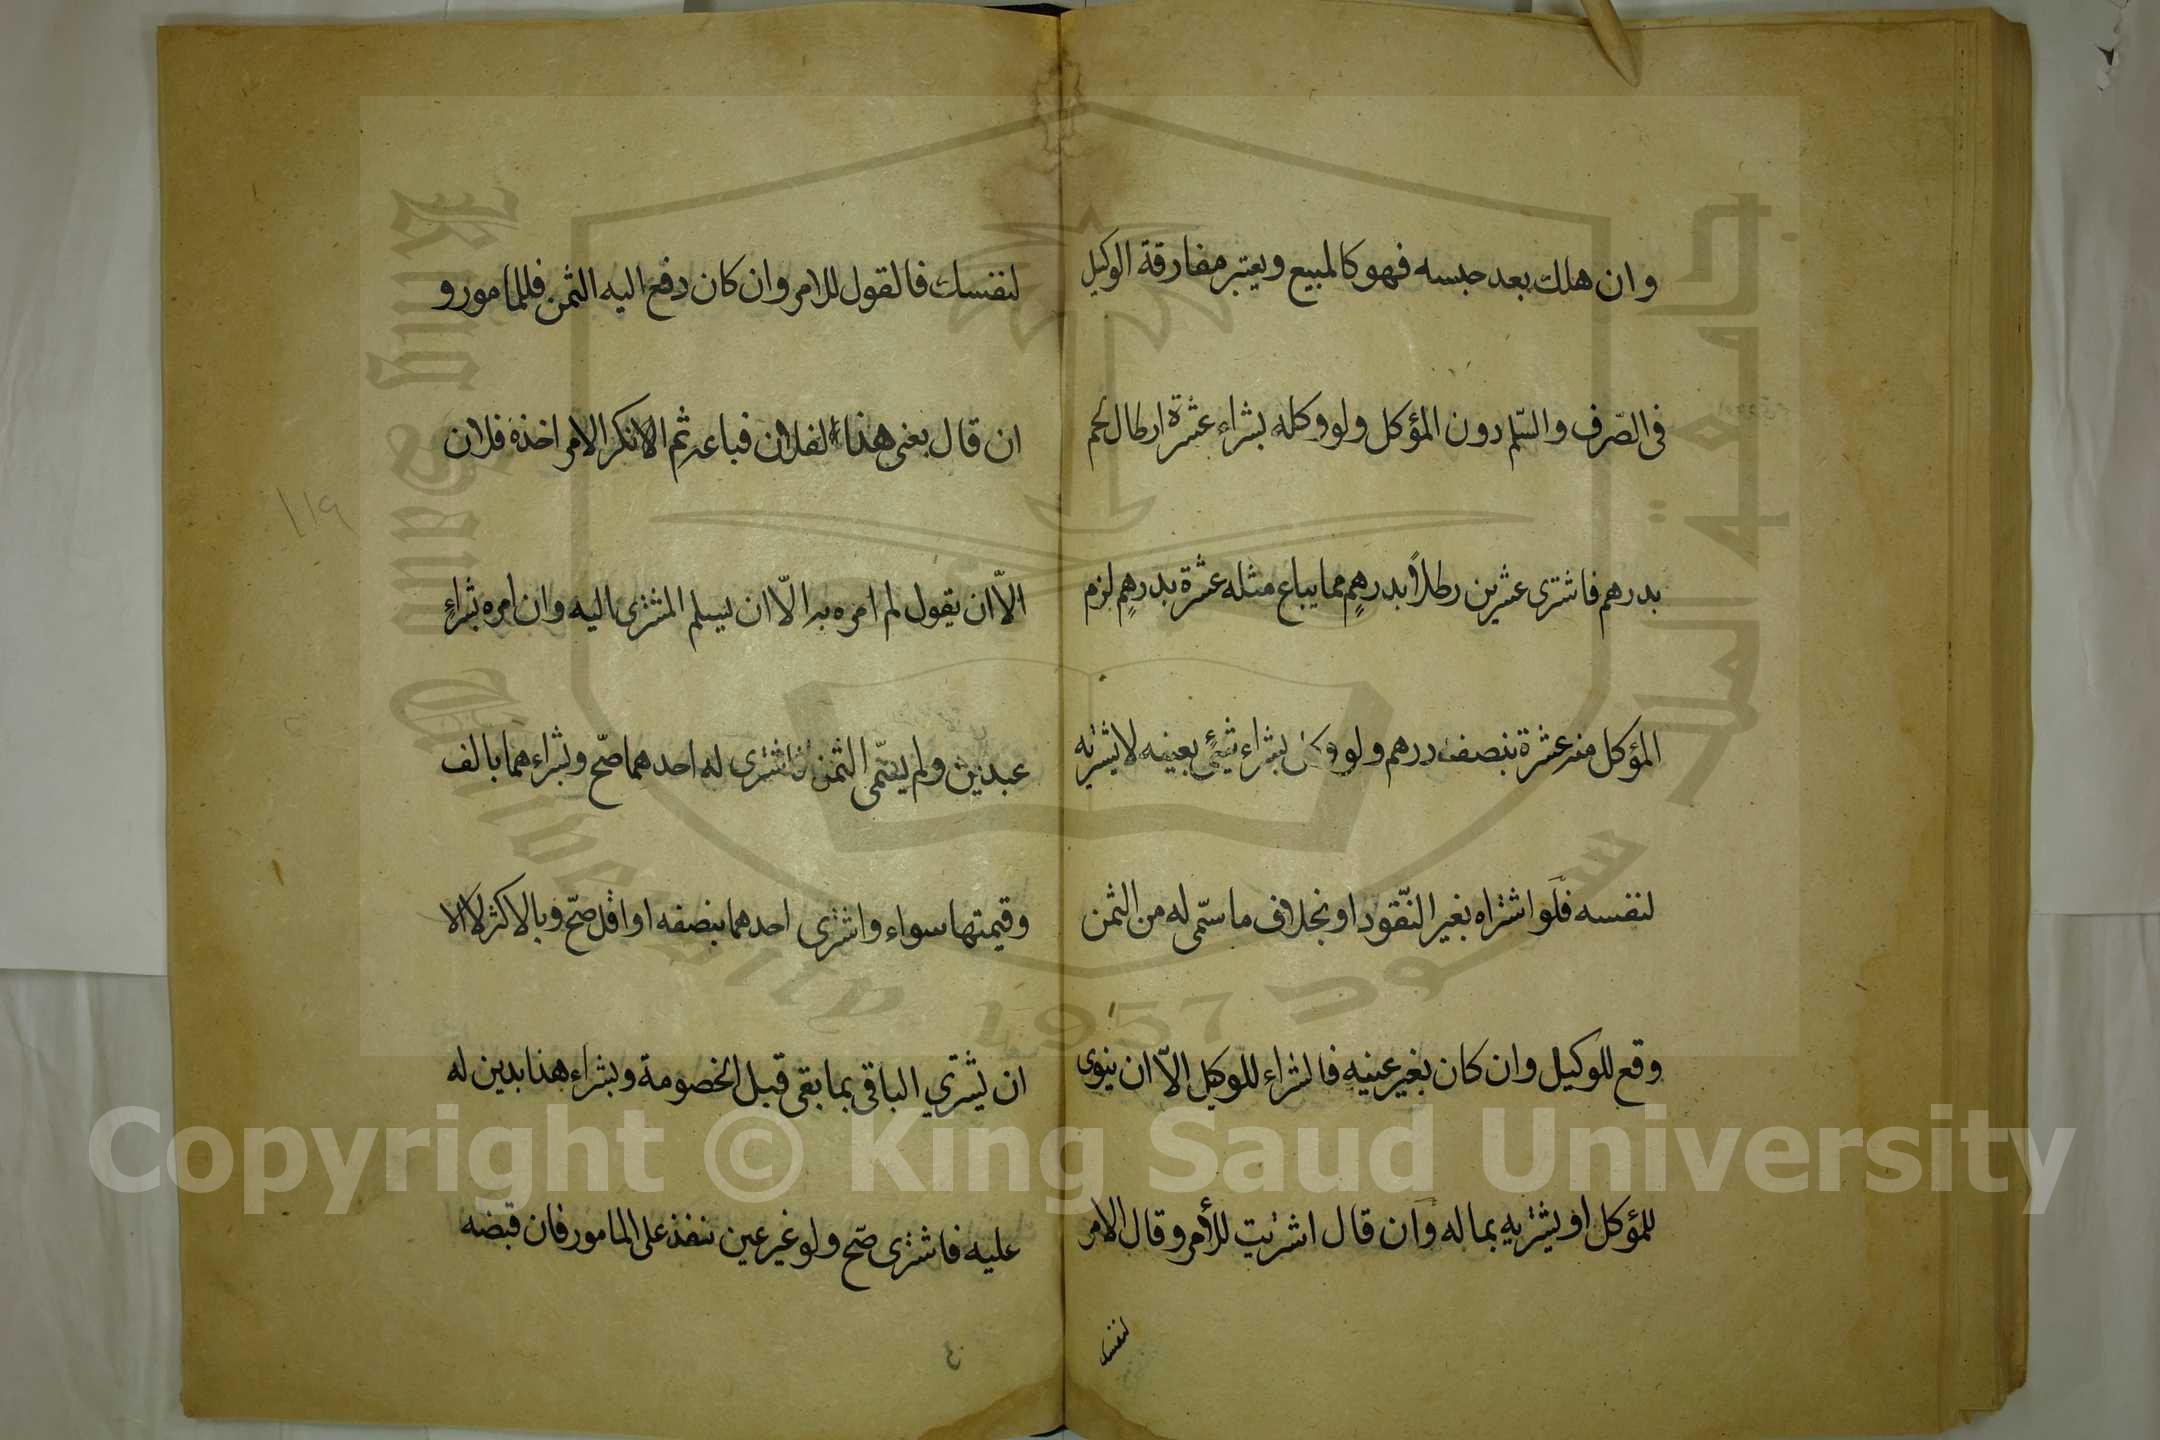 وان هلك بعد حبسه فهو كالمبيع ويعتبر مفارقة الوكيل
فى الصّرف والسّلم دون المؤكل ولو وكله بشراء عشرة ارطال لحم
بدرهم فاشترى عشرين رطلاً بدرهمٍ مما يباع مثله عشرة بدرهمٍ لزم
المؤكل منه عشرة بنصف درهم ولو وكل بشراء شيئٍ بعينه لا يشتريه
لنفسه فلو اشتراه بغير النّقود او بخلاف ما سمّى له من الثمن
وقع للوكيل وان كان بغير عينه فالشراء للوكيل الاّ ان ينوى
للمؤكل او يشتريه بماله وان قال اشتريت للأمر وقال الامر
لنفسك
لنفسك فالقول للامر وان كان دفع اليه الثمن فللمامور و
ان قال بعنى هذا لفلان فباعه ثم انكر الامر اخذه فلان
الاّ ان يقول لم امره به الاّ ان يسلم المشترى اليه وان امره بشراءِ
عبدين ولم يسمّى الثمن فاشترى له احدهما صّح وبشراءهما بالف
وقيمتها سواء واشترى احدهما بنصفه او اقل صّح وبالاكثر لا الا
ان يشتري الباقى بما بقى قبل الخصومة وبشراء هذا بدين له
عليه فاشترى صّح ولو غير عين نفذ على المامور فان قبضه
١١٩
جامعة الملك سعود
King Saud University
1957
Copyright © King Saud University